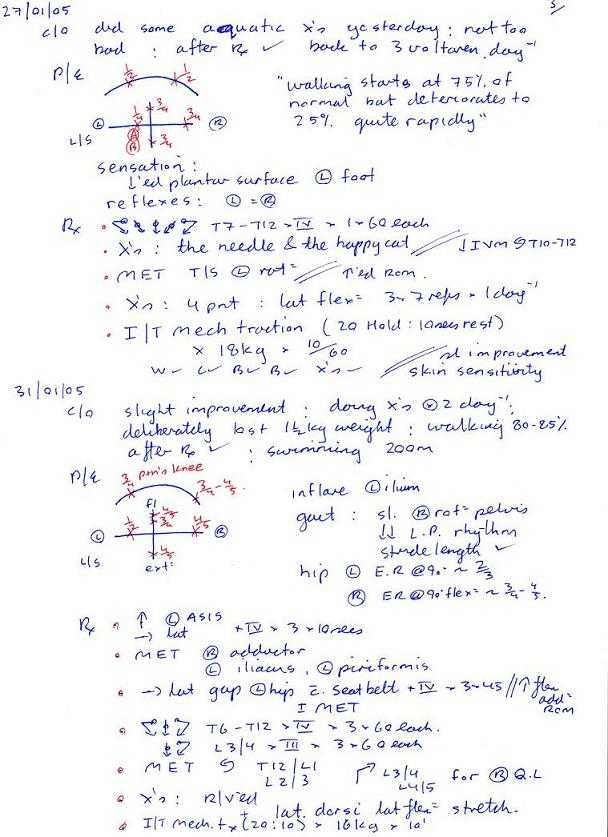 27/01/05 5/
c/o did some aquatic x's yesterday : not too
bad : after Rx ✓ back to 3 voltaren day⁻¹
P/E 1/2 1/2
"walking starts at 75% of
normal but deteriorates to
25% quite rapidly"
1/2 3/4 3/4
Ⓛ Ⓡ
L/S 3/4
sensation :
↓'ed plantar surface Ⓛ foot
reflexes : Ⓛ = Ⓡ
Rx • T7-T12 × IV × 1 × 60 each
• X's : the needle & the happy cat // ↓ IVM T10-T12
• MET T/S Ⓛ rot= // ↑'ed ROM.
• X's : 4 pnt : lat flex= 3 × 7 reps × 1 day⁻¹
• I/T mech traction (20 Hold : 10 secs rest)
× 18kg × 10/60
W ✓ C ✓ B ✓ B ✓ X's ✓ // sl improvement
skin sensitivity
31/01/05
c/o slight improvement : doing x's × 2 day⁻¹ :
deliberately lost 1½ kg weight : walking 80-85%
after Rx ✓ : swimming 200m
P/E 3/4 pm's knee 3/4-4/5
inflare Ⓛ ilium
fl
gait : sl. Ⓡ rot= pelvis
1/2 4/5 3/4 4/5
Ⓛ Ⓡ
↓↓ L.P. rhythm
stride length ✓
L/S 4/5
ext=
hip Ⓛ E.R @90° ~ 2/3
Ⓡ ER @90°flex= ~ 3/4 - 4/5.
Rx • ↑ Ⓛ ASIS
→ lat + IV × 3 × 10 secs
• MET Ⓡ adductor
Ⓛ iliacus, Ⓛ piriformis
• → lat gap Ⓛ hip c. seatbelt + IV × 3 × 45 // ↑ flex
add=
ROM
I MET
• T6-T12 × IV × 3 × 60 each.
L3/4 × III × 3 × 60 each
• MET T12/L1
L2/3 L3/4
L4/5 for Ⓡ Q.L
• X's : R/v'ed
+ lat. dorsi lat flex= stretch.
• I/T mech. tx (20:10) × 16kg × 10'